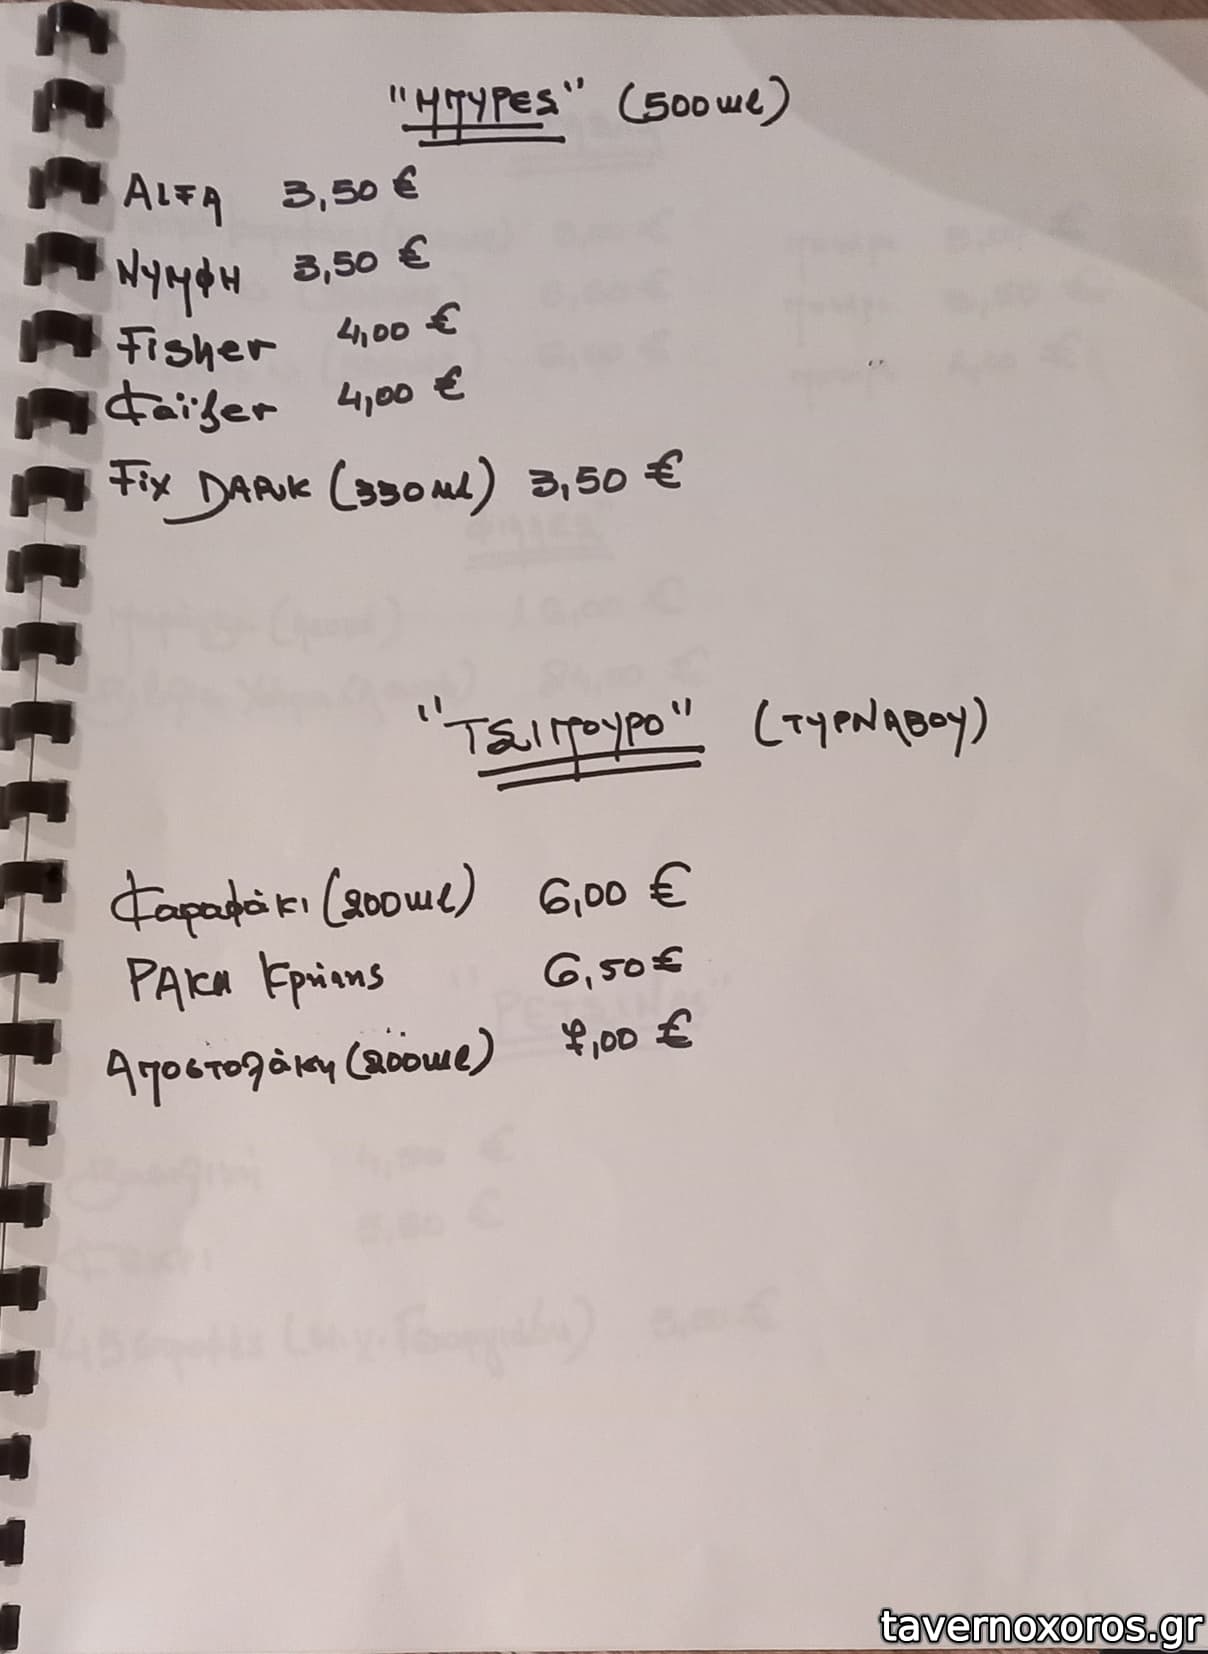 "ΜΠΥΡΕS" (500ml)
ALFA 3,50 €
ΝΥΜΦΗ 3,50 €
Fisher 4,00 €
Καϊζer 4,00 €
Fix DARK (330ml) 3,50 €
"ΤΣΙΠΟΥΡΟ" (ΤΥΡΝΑΒΟΥ)
Καραφάκι (200ml) 6,00 €
ΡΑΚΗ Κρήτης 6,50 €
Αποστολάκη (200ml) 7,00 €
tavernoxoros.gr